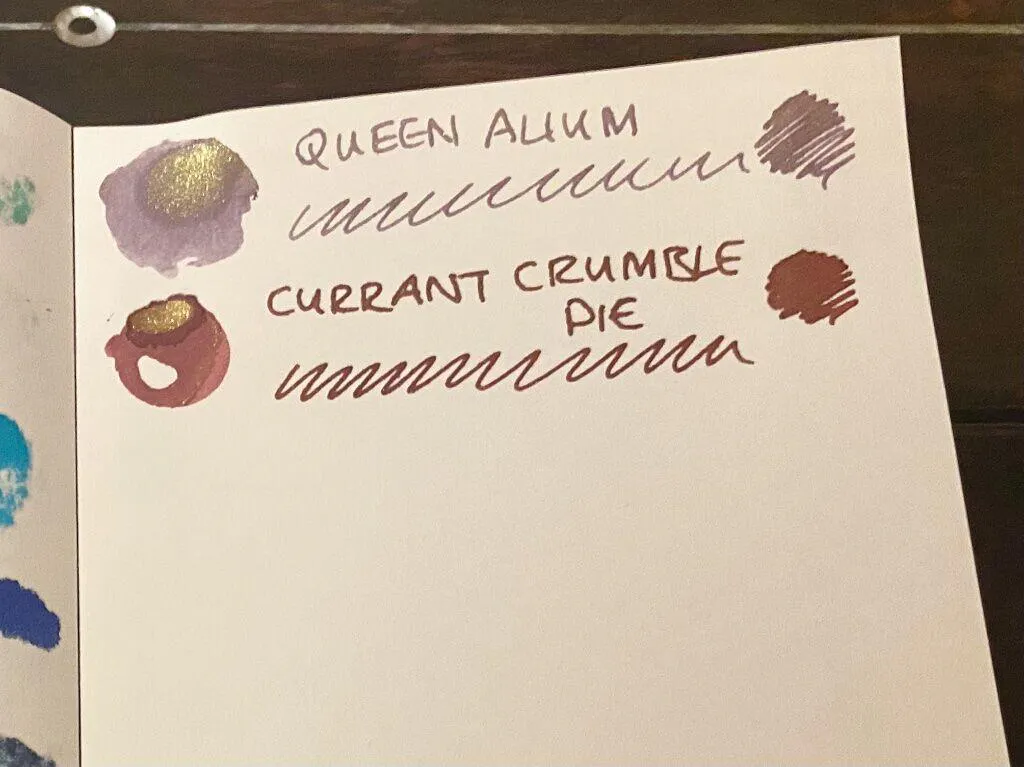 QUEEN ALIUM
CURRANT CRUMBLE
PIE